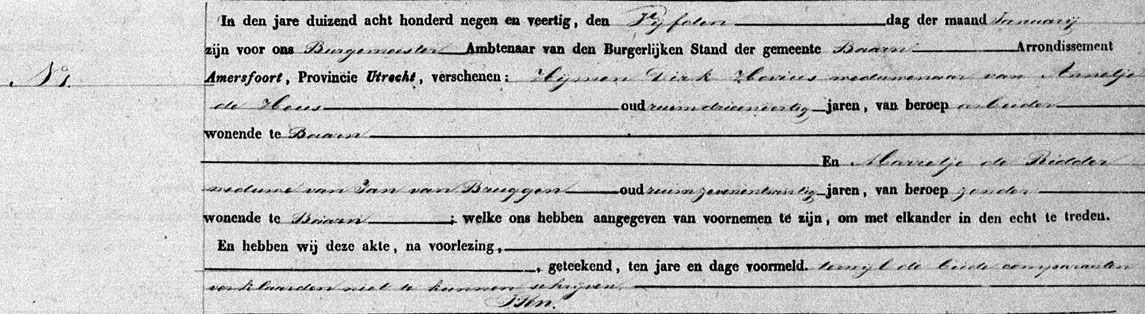 In den jare duizend acht honderd negen en veertig, den Vyfden dag der maand January
zijn voor ons Burgemeester Ambtenaar van den Burgerlijken Stand der gemeente Baarn Arrondissement
No 1. Amersfoort, Provincie Utrecht, verschenen: Hijmen Dirk Hovius weduwenaar van Annetje
de Heus oud ruim drieenveertig jaren, van beroep arbeider
wonende te Baarn
En Marretje de Ridder
weduwe van Jan van Bruggen oud ruim zevenentwintig jaren, van beroep zonder
wonende te Baarn; welke ons hebben aangegeven van voornemen te zijn, om met elkander in den echt te treden.
En hebben wij deze akte, na voorlezing,
, geteekend, ten jare en dage voormeld. terwyl de beide comparanten
verklaarden niet te kunnen schryven.